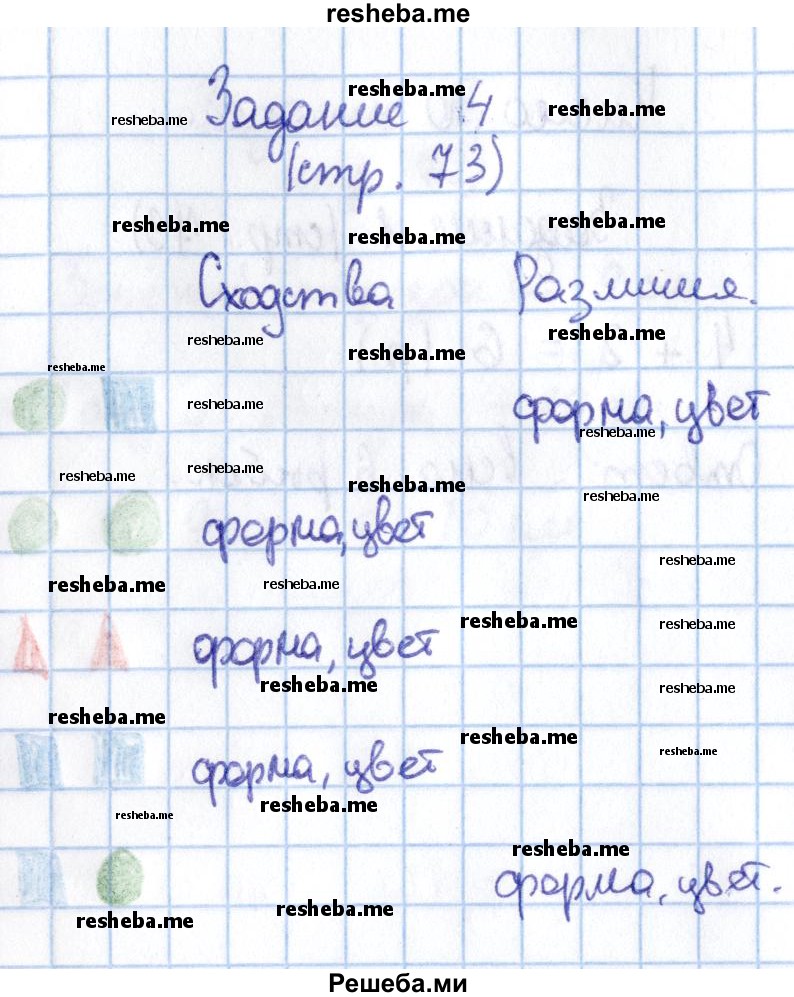 resheba.me
resheba.me
resheba.me
resheba.me
Задание 4
(стр. 73)
resheba.me
resheba.me
resheba.me
Сходства Различия.
resheba.me
resheba.me
resheba.me
resheba.me
resheba.me
форма, цвет
resheba.me
resheba.me
resheba.me
resheba.me
resheba.me
форма, цвет
resheba.me
resheba.me
resheba.me
resheba.me
resheba.me
форма, цвет
resheba.me
resheba.me
resheba.me
resheba.me
resheba.me
форма, цвет
resheba.me
resheba.me
resheba.me
форма, цвет.
resheba.me
resheba.me
Решеба.ми